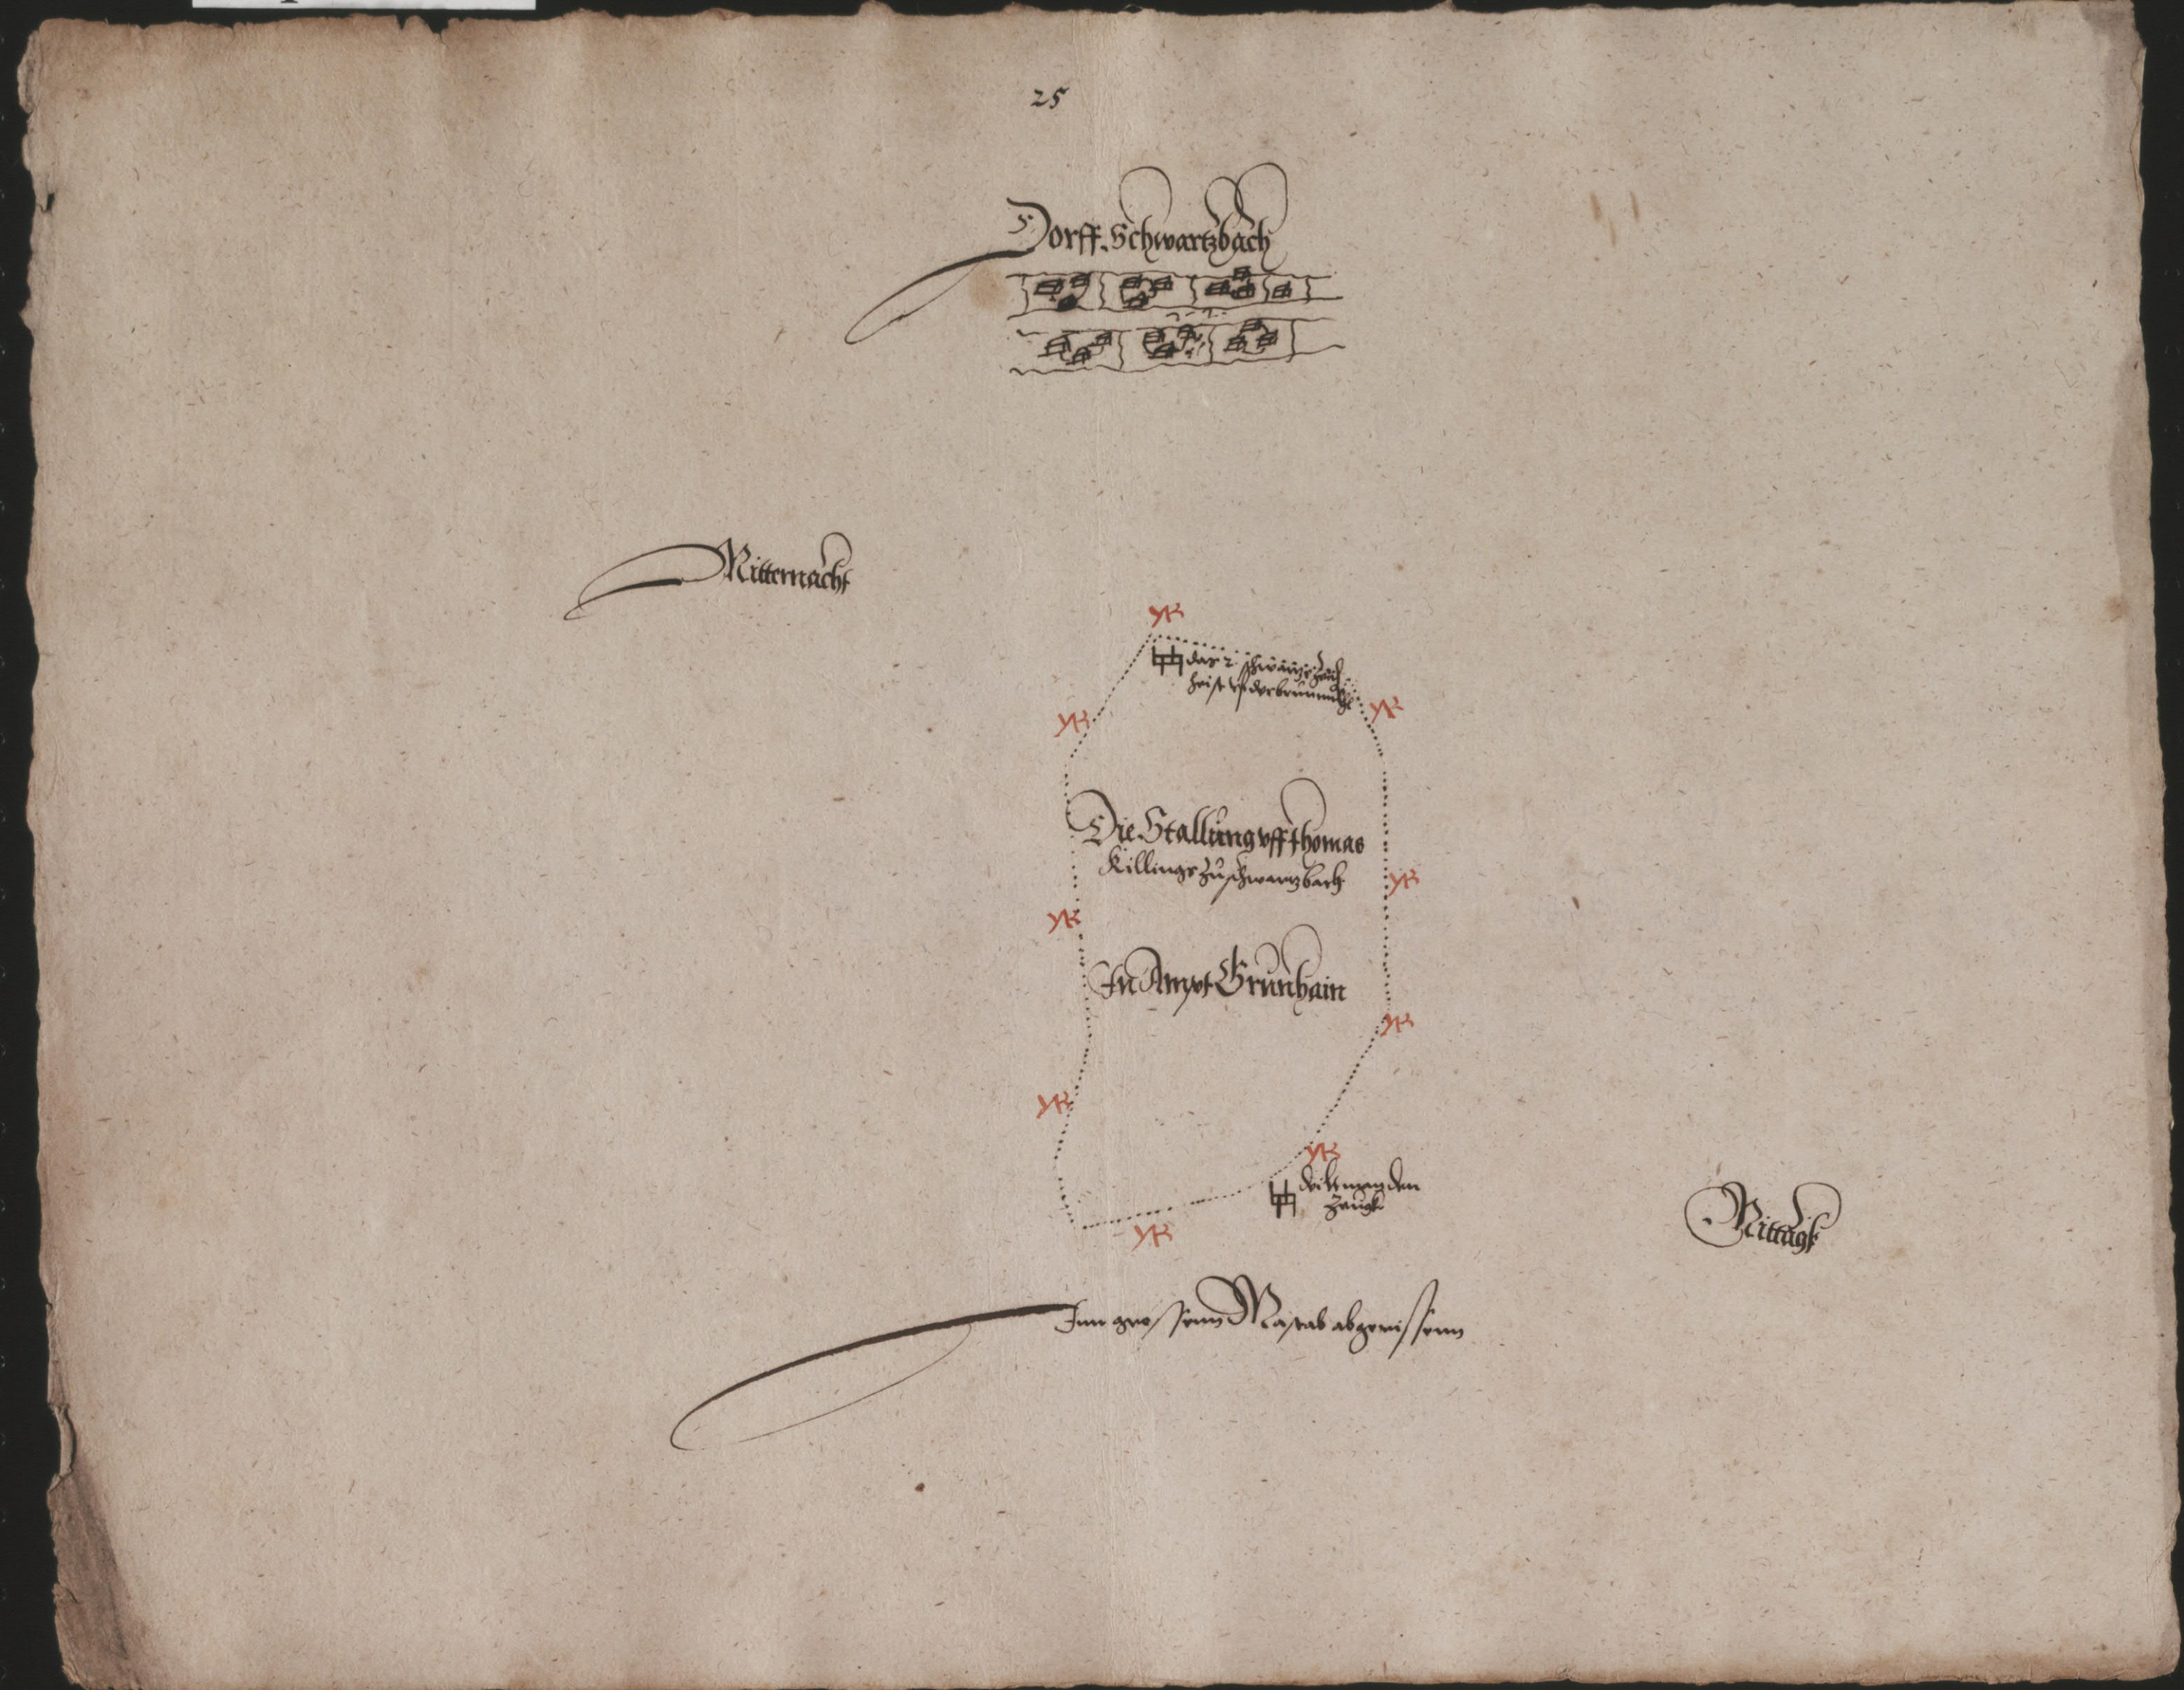 25
Dorff Schwartzbach
Mitternacht
das 2 schwartze Zeuch
heist uf der brunnen
Die Stallung uff thomas
Killings zu schwartzbach
In Ampt Grunhain
den
Zeugk
Mittagk
Inn grossenn Mastab abgerissenn